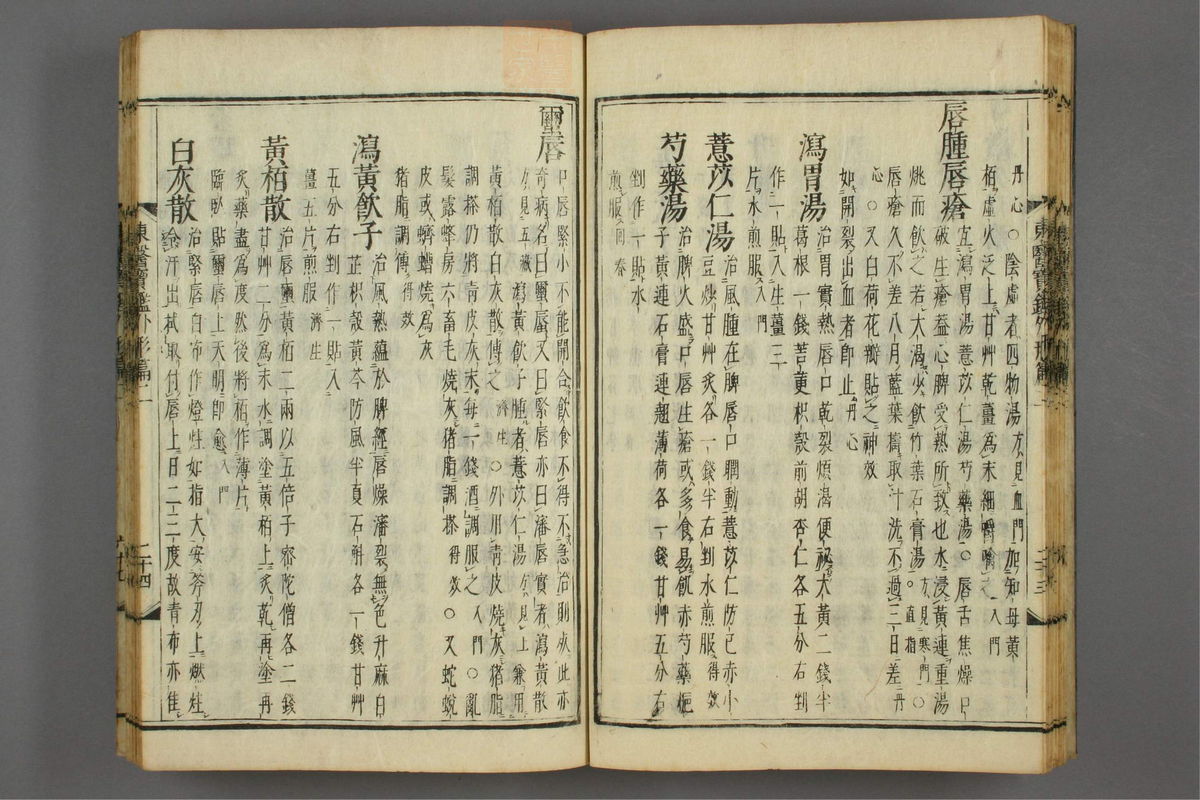 丹心○陰虛者四物湯方見血門加知母黃
栢虛火泛上甘艸乾薑為末細嚼噙之入門
唇腫唇瘡
宜瀉胃湯薏苡仁湯芍藥湯○唇舌焦燥口
破生瘡葢心脾受熱所致也水浸黃連重湯
炖而飲之若大渴少飲竹葉石膏湯方見寒門○
唇瘡久不差八月藍葉擣取汁洗不過三日差丹
心○又白荷花瓣貼之神效
如開裂出血者卽止丹心
瀉胃湯 治胃實熱唇口乾裂煩渴便祕大黃二錢半
葛根一錢苦莄枳殼前胡杏仁各五分右剉
作一貼入生薑三
片水煎服入門
薏苡仁湯 治風腫在脾唇口瞤動薏苡仁防已赤小
豆炒甘艸炙各一錢半右剉水煎服得效
芍藥湯 治脾火盛口唇生瘡或多食易飢赤芍藥梔
子黃連石膏連翹薄荷各一錢甘艸五分右
剉作一貼水
煎服回春
東醫寶鑑外形篇二
二十三
繭唇
口唇緊小不能開合飲食不得不急治則死此亦
奇病名曰繭唇又曰緊唇亦曰瀋唇實者瀉黃散
方見五臟瀉黃飲子腫者薏苡仁湯方見上兼用
黃栢散白灰散傅之濟生○外用靑皮燒灰猪脂
調搽仍將靑皮灰末每一錢酒調服之入門○亂
髮露蜂房六畜毛燒灰猪脂調搽得效○又蛇蛻
皮或蠐螬燒為灰
猪脂調傅得效
瀉黃飲子 治風熱蘊於脾經唇燥瀋裂無色升麻白
芷枳殼黃芩防風半夏石斛各一錢甘艸
五分右剉作一貼入
薑五片煎服濟生
黃栢散 治唇繭黃栢二兩以五倍子密陀僧各二錢
甘艸二分為末水調塗黃栢上炙乾再塗再
炙藥盡為度然後將栢作薄片
臨臥貼繭唇上天明卽愈入門
白灰散 治緊唇白布作燈炷如指大安斧刃上燃炷
令汗出拭取付唇上日二三度故靑布亦佳
東醫寶鑑外形篇二
二十四